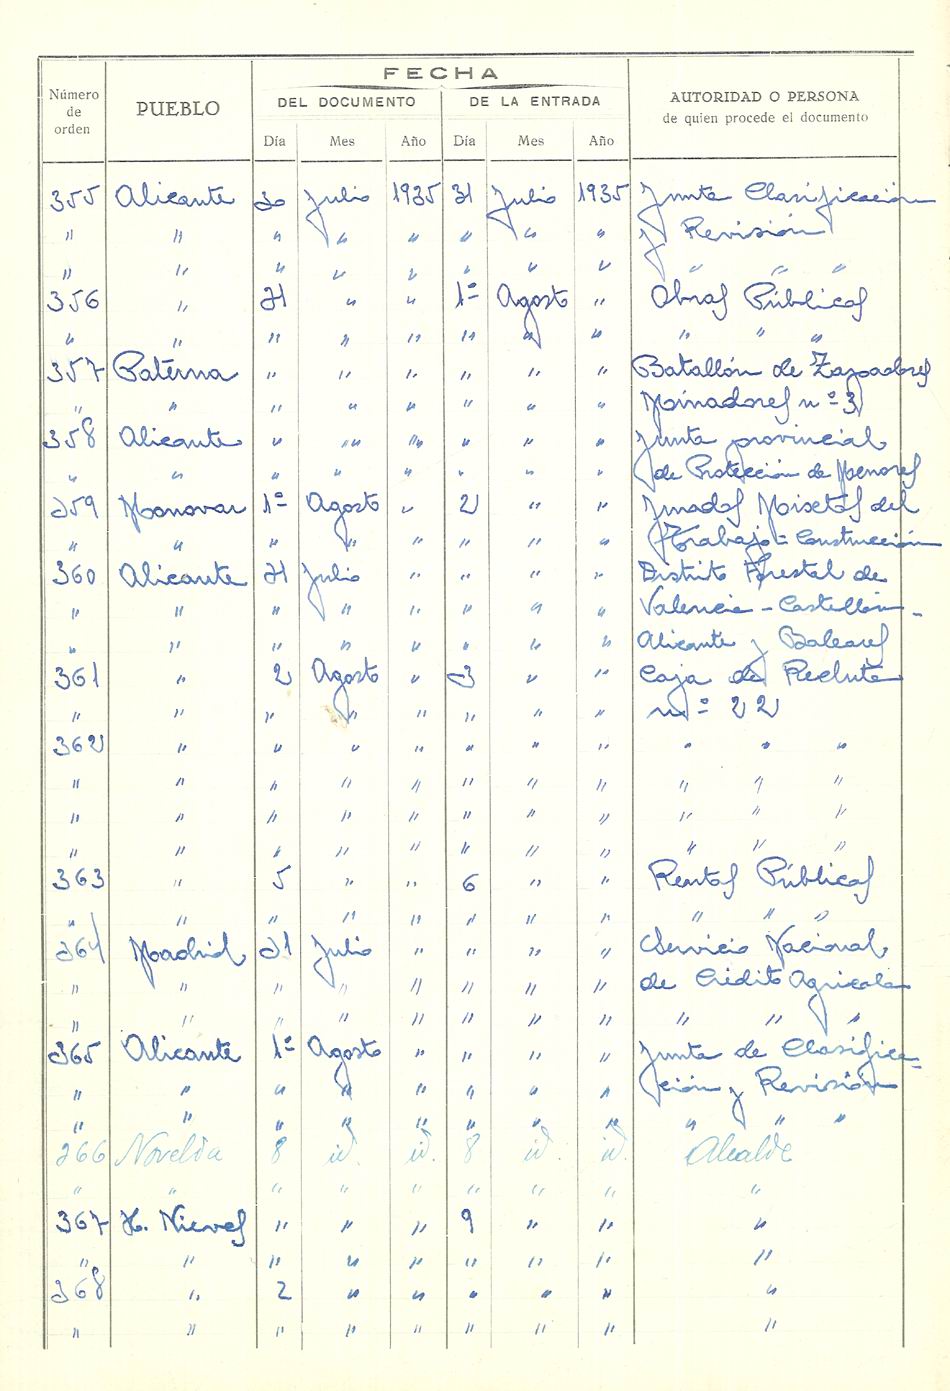 FECHA
Número de orden PUEBLO DEL DOCUMENTO DE LA ENTRADA AUTORIDAD O PERSONA de quien procede el documento
Día Mes Año Día Mes Año
355 Alicante 30 Julio 1935 31 Julio 1935 Junta Clasificación
" " " " " " " " y Revisión
" " " " " " " " " " "
356 " 31 " " 1º Agosto " Obras Públicas
" " " " " " " " " " "
357 Paterna " " " " " " Batallón de Zapadores
" " " " " " " " Minadores nº 3
358 Alicante " " " " " " Junta provincial
" " " " " " " " de Protección de Menores
359 Monovar 1º Agosto " 2 " " Jurados Mixtos del
" " " " " " " " Trabajo = Construcción
360 Alicante 31 Julio " " " " Distrito Forestal de
" " " " " " " " Valencia - Castellón -
" " " " " " " " Alicante y Baleares
361 " 2 Agosto " 3 " " Caja de Recluta
" " " " " " " " nº 22
362 " " " " " " " " " "
" " " " " " " " " " "
" " " " " " " " " " "
" " " " " " " " " " "
363 " 5 " " 6 " " Rentas Públicas
" " " " " " " " " " "
364 Madrid 31 Julio " " " " Servicio Nacional
" " " " " " " " de Crédito Agricola
" " " " " " " " " " "
365 Alicante 1º Agosto " " " " Junta de Clasifica-
" " " " " " " " ción y Revisión
" " " " " " " " " " "
366 Novelda 8 id. id. 8 id. id. Alcalde
" " " " " " " " "
367 H. Nieves " " " 9 " " "
" " " " " " " " "
368 " 2 " " " " " "
" " " " " " " " "